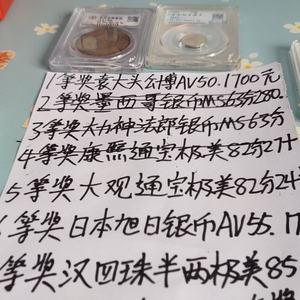 1等奖袁大头公博AV50.1700元
2等奖墨西哥银币MS63分280.
3等奖大力神法郎银币MS63分
4等奖康熙通宝极美82分2十
5等奖大观通宝极美82分2十
等奖日本旭日银币AV55.17
等奖汉四珠半两极美85